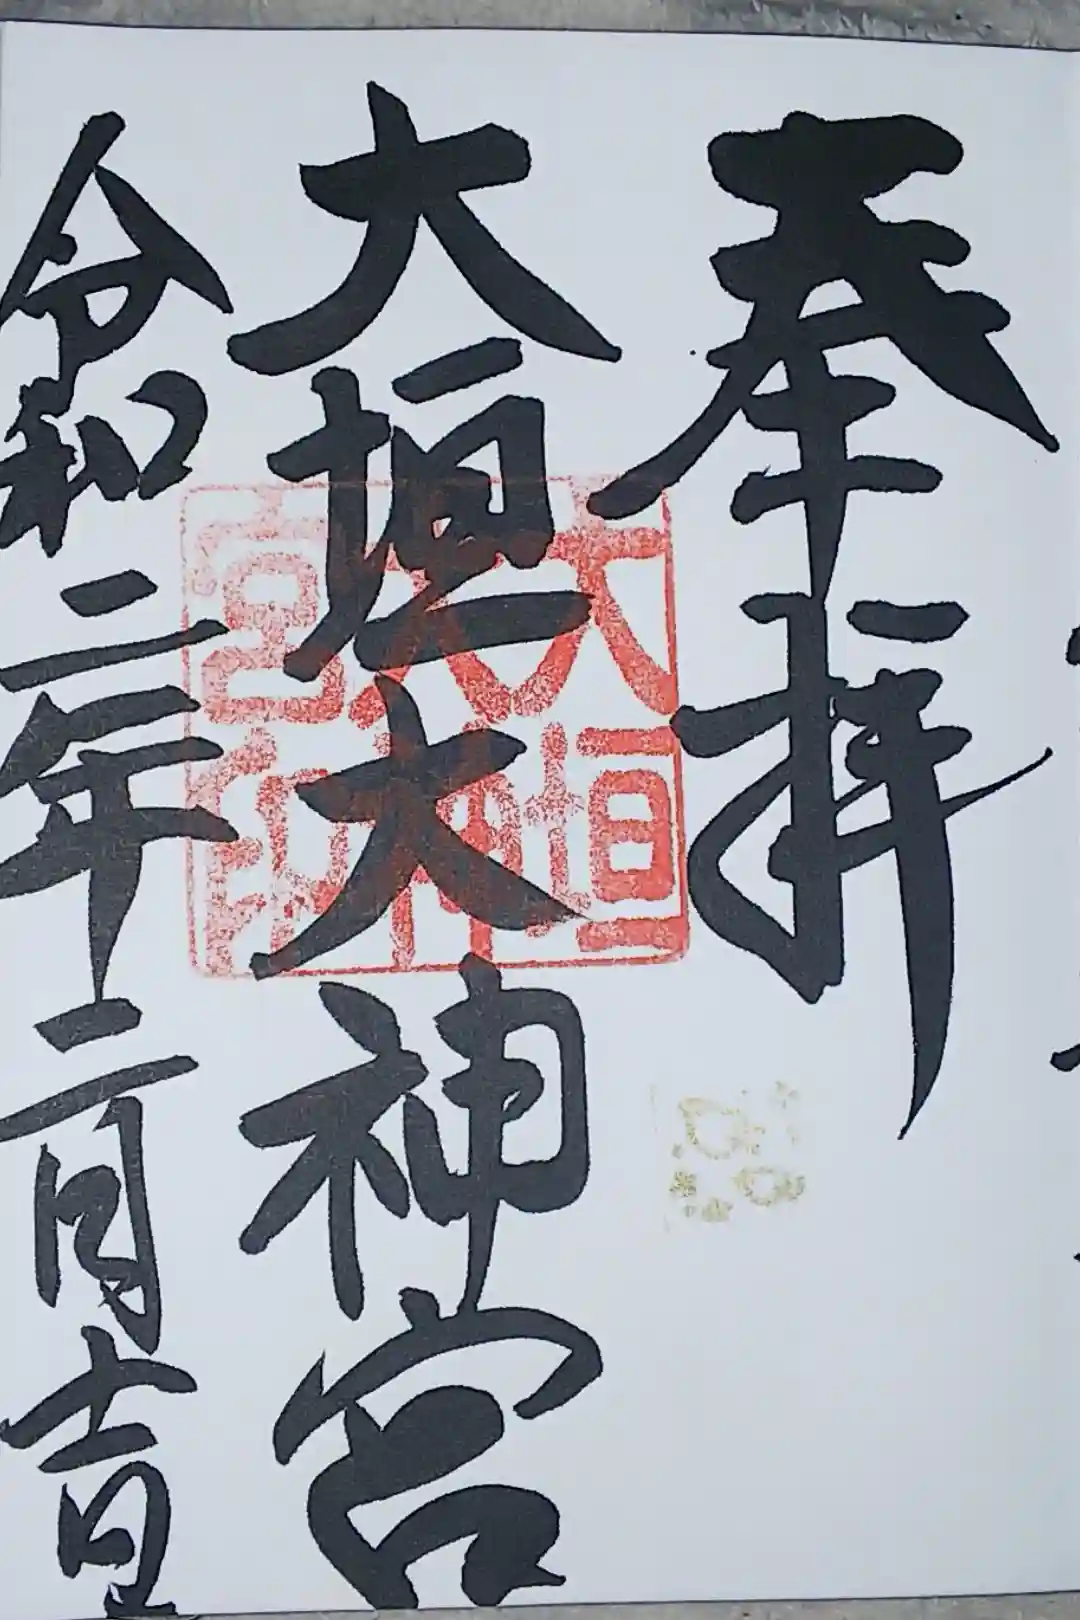 奉拝
大垣大神宮
令和二年二月十一日
大垣
大神
宮印